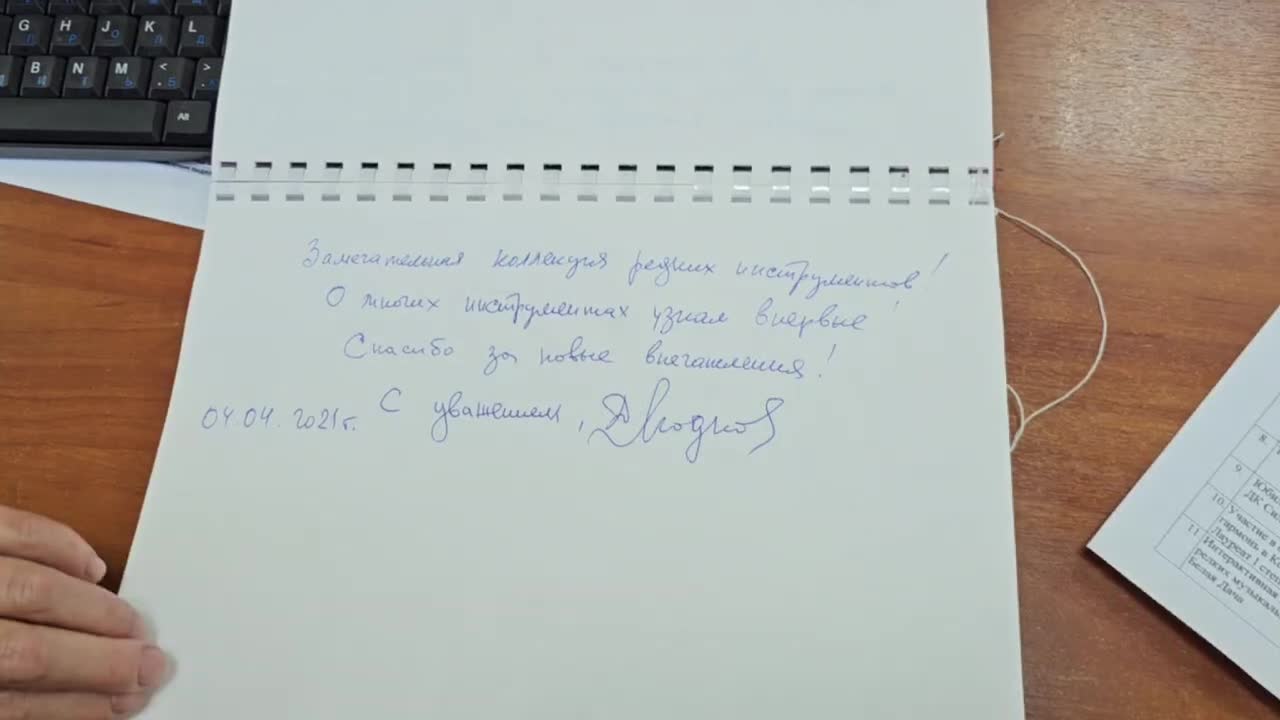 G H J K L
П Р О Л Д
B N M < >
И Т Ь Б
Alt
Замечательная коллекция редких инструментов!
О многих инструментах узнал впервые!
Спасибо за новые впечатления!
04.04.2021г. С уважением,
8.
9
ДК
10. Участие в
гармонь в
11 Лауреат 1
Интерактивная
редких
Белая Дача